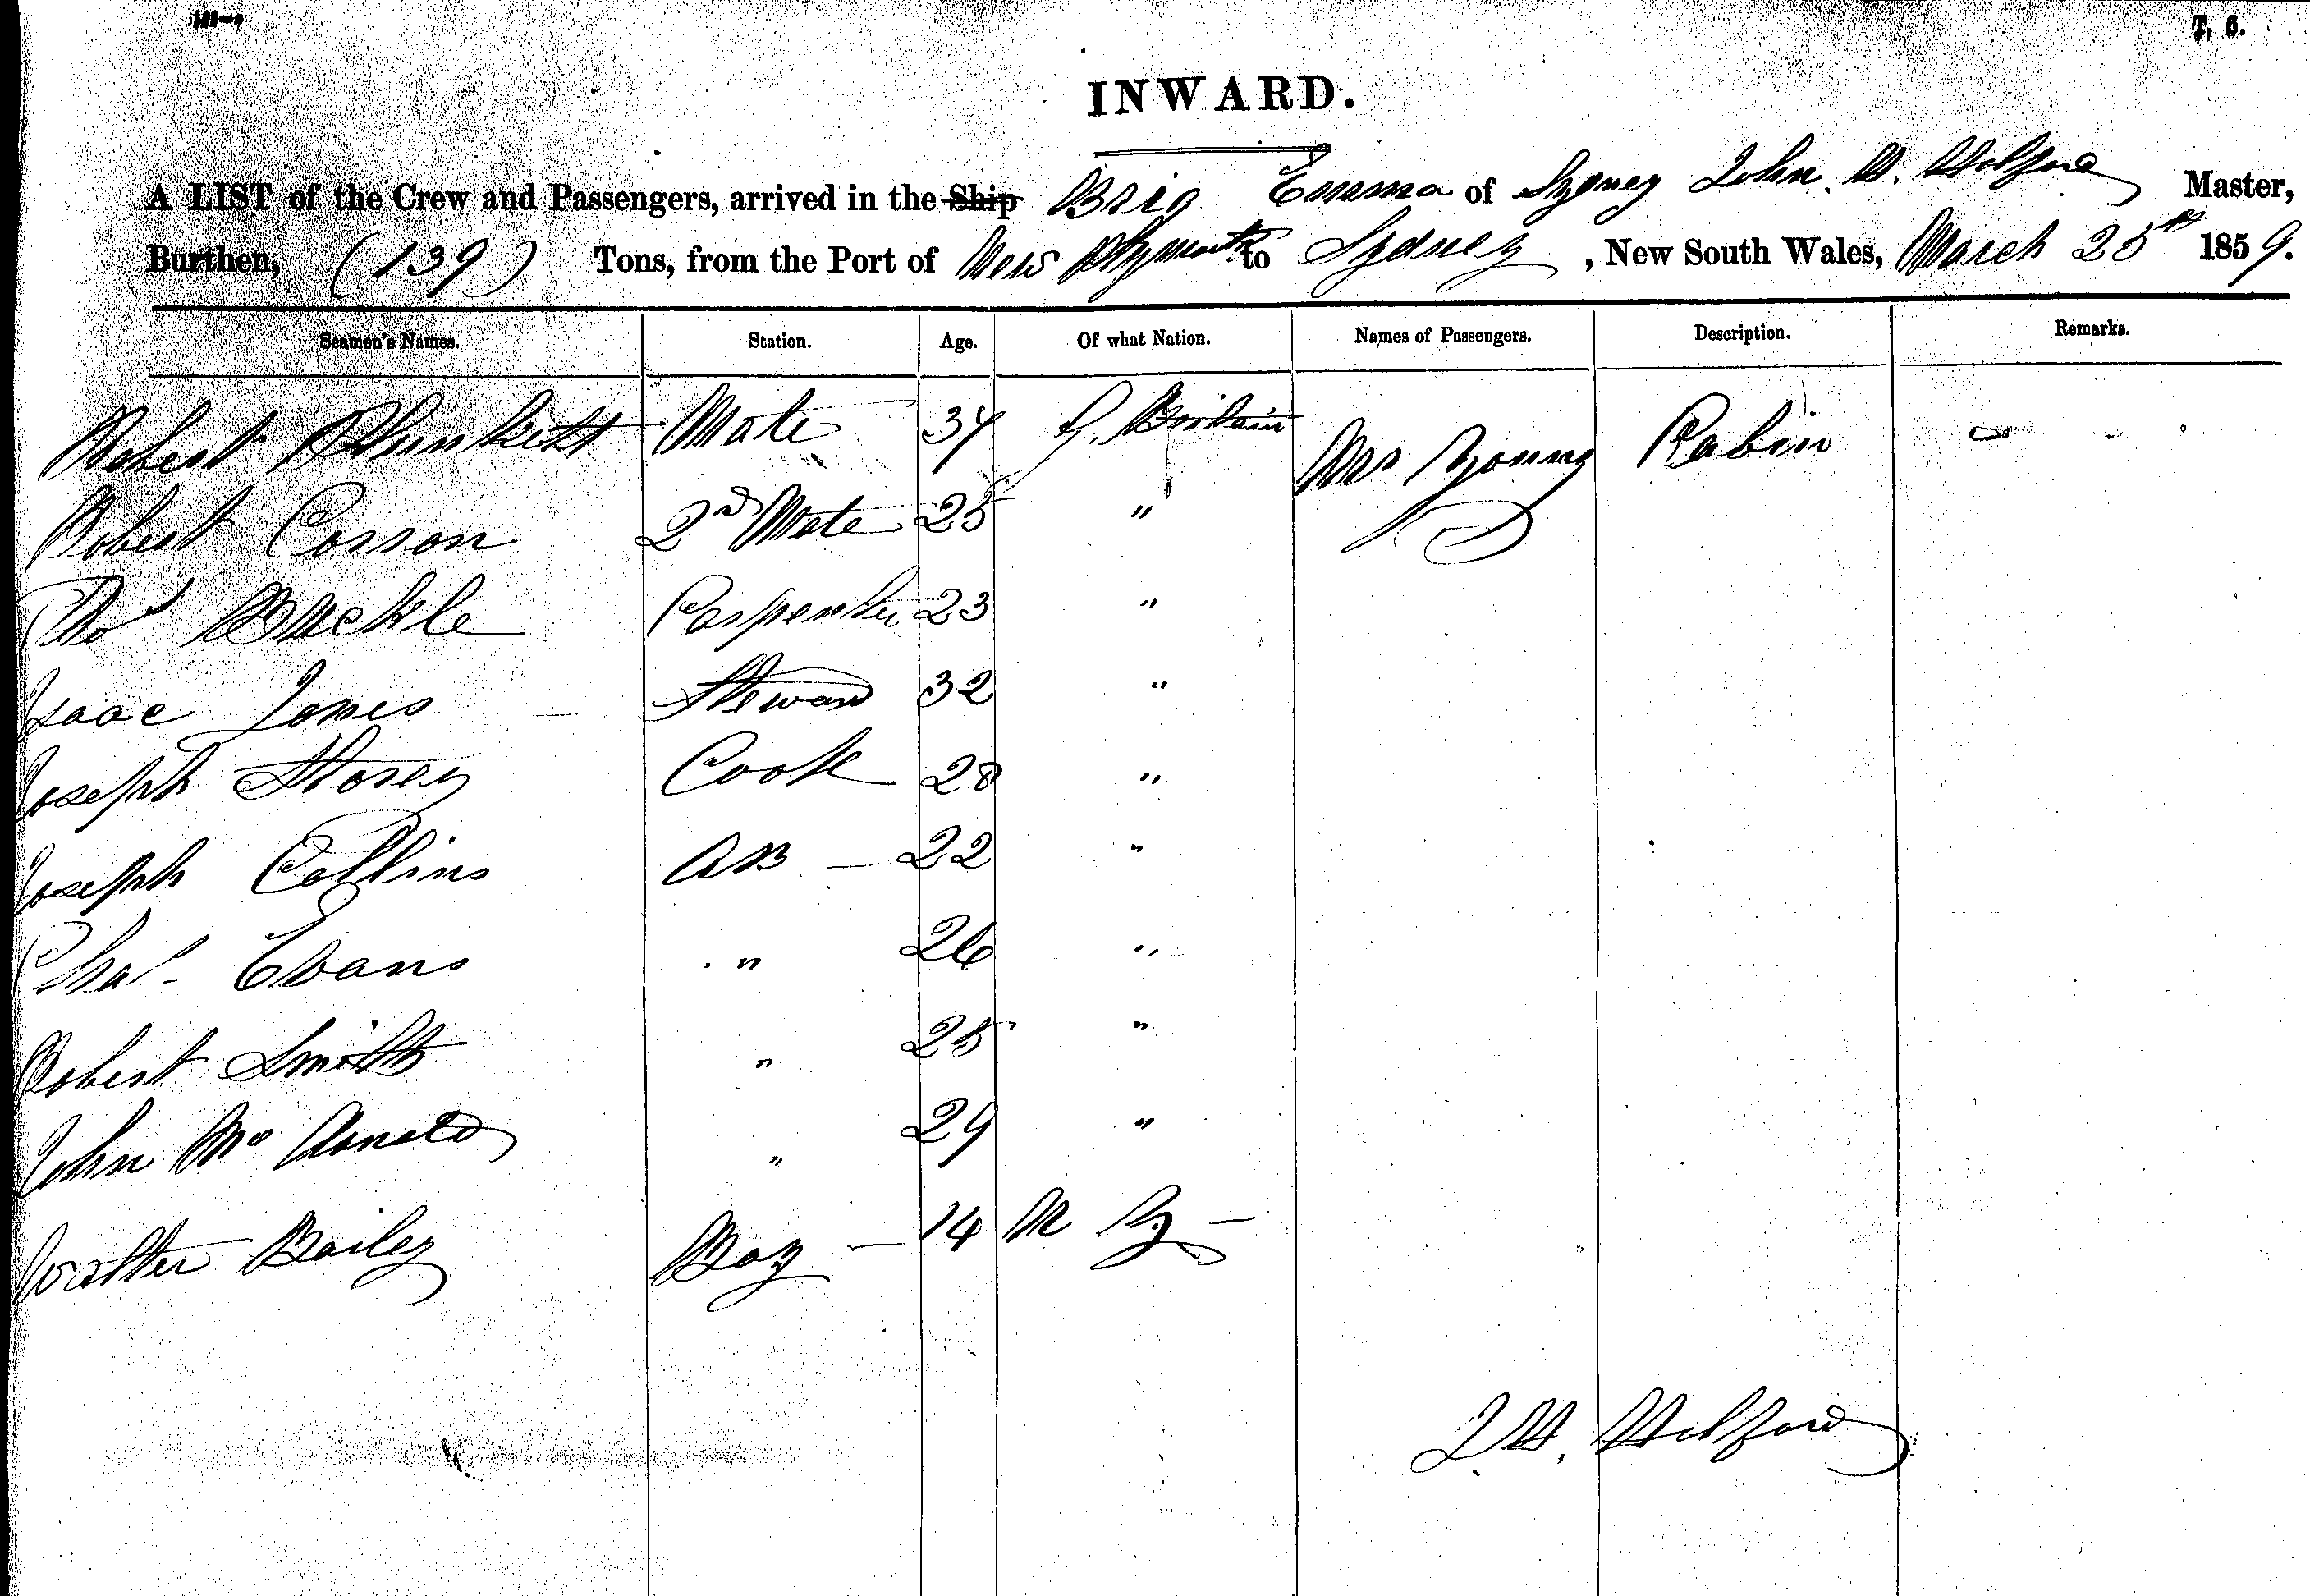 T. S.
INWARD.
A LIST of the Crew and Passengers, arrived in the Ship Brig Emma of Sydney John W. Holford Master,
Burthen, (139) Tons, from the Port of New Plymouth to Sydney, New South Wales, March 25th 1859.
Seamen's Names. Station. Age. Of what Nation. Names of Passengers. Description. Remarks.
Robert Plunkett Mate 34 G. Britain Mrs Young Cabin
Robert Corson 2nd Mate 25 "
Thos Buckle Carpenter 23 "
Isaac Jones Steward 32 "
Joseph Storey Cook 28 "
Joseph Collins AB 22 "
Chas Evans " 26 "
Robert Smith " 25 "
John " 29 "
Walter Bailey Boy 14 N Z
J W. Holford